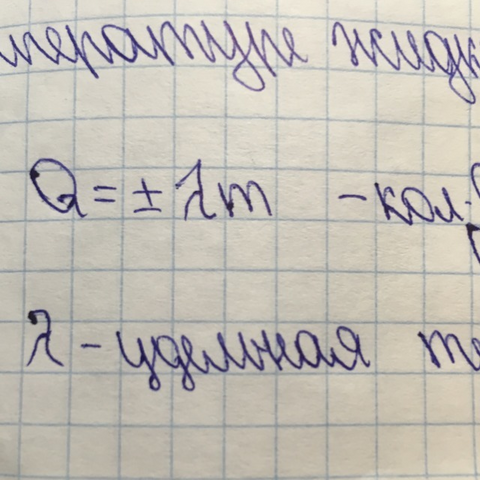 пературе жидк
Q = ± λm - кол-
λ - удельная те